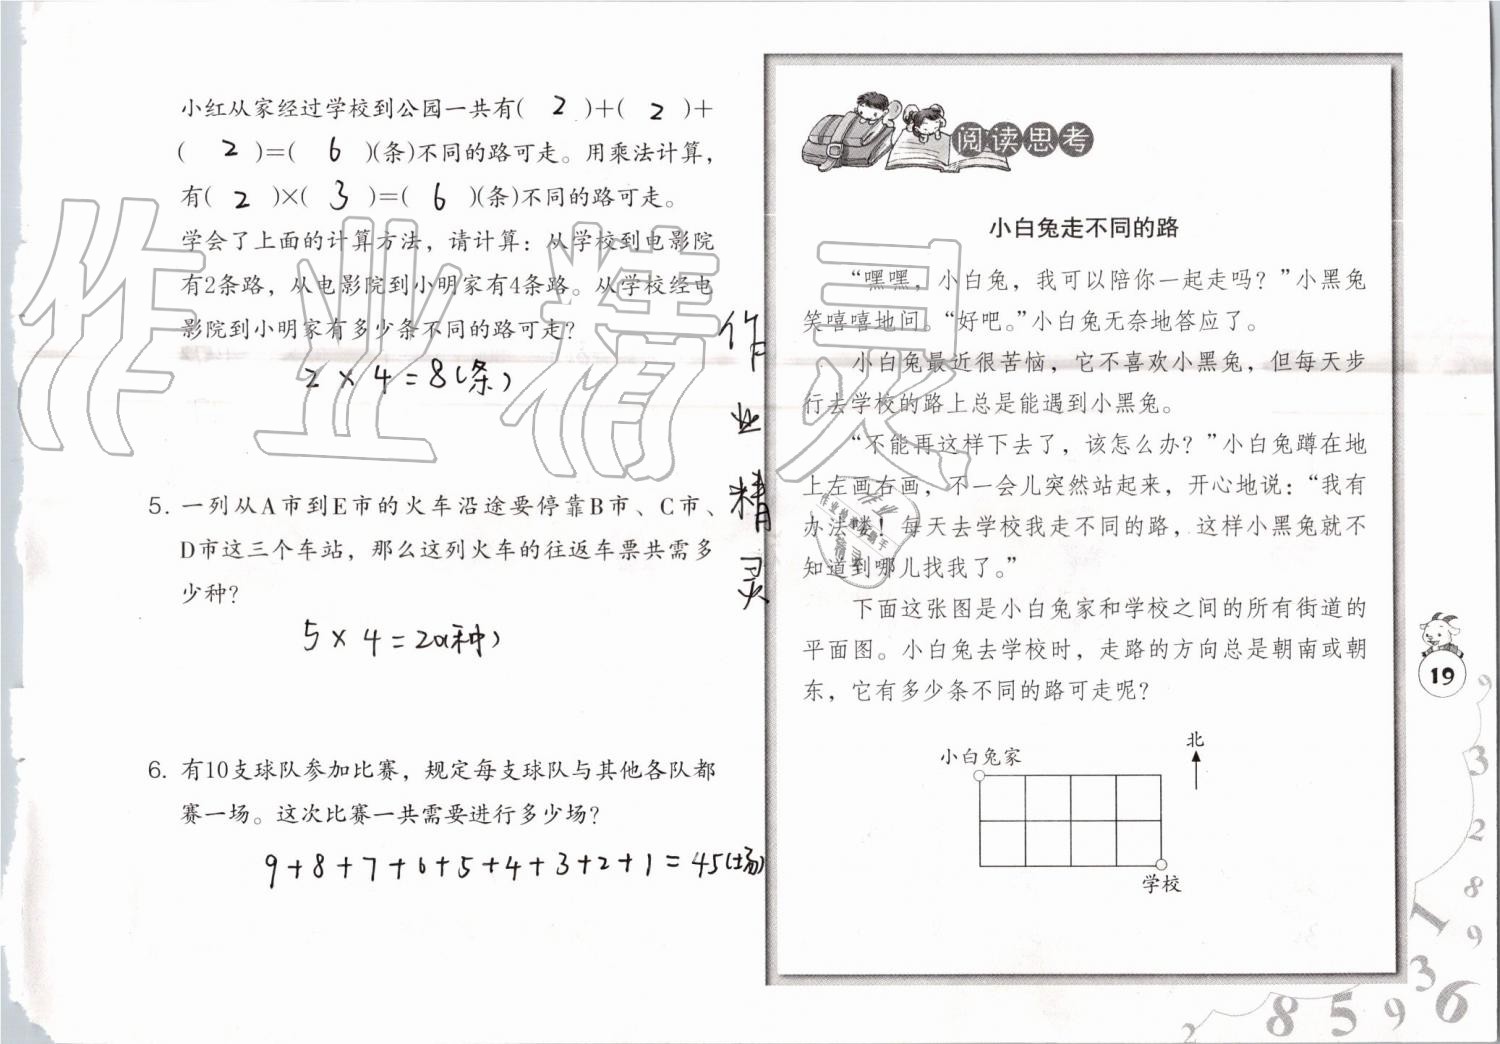 小红从家经过学校到公园一共有( 2 )+( 2 )+
( 2 )=( 6 )(条)不同的路可走。用乘法计算，
有( 2 )×( 3 )=( 6 )(条)不同的路可走。
学会了上面的计算方法，请计算：从学校到电影院
有2条路，从电影院到小明家有4条路。从学校经电
影院到小明家有多少条不同的路可走？
2×4=8(条)
5. 一列从A市到E市的火车沿途要停靠B市、C市、
D市这三个车站，那么这列火车的往返车票共需多
少种？
5×4=20(种)
6. 有10支球队参加比赛，规定每支球队与其他各队都
赛一场。这次比赛一共需要进行多少场？
9+8+7+6+5+4+3+2+1=45(场)
作业精灵
作
业
精
灵
阅读思考
小白兔走不同的路
“嘿嘿，小白兔，我可以陪你一起走吗？”小黑兔
笑嘻嘻地问。“好吧。”小白兔无奈地答应了。
小白兔最近很苦恼，它不喜欢小黑兔，但每天步
行去学校的路上总是能遇到小黑兔。
“不能再这样下去了，该怎么办？”小白兔蹲在地
上左画右画，不一会儿突然站起来，开心地说：“我有
办法喽！每天去学校我走不同的路，这样小黑兔就不
知道到哪儿找我了。”
下面这张图是小白兔家和学校之间的所有街道的
平面图。小白兔去学校时，走路的方向总是朝南或朝
东，它有多少条不同的路可走呢？
北
小白兔家
学校
19
9
3
2
8
9
1
3
6
2
8
5
9